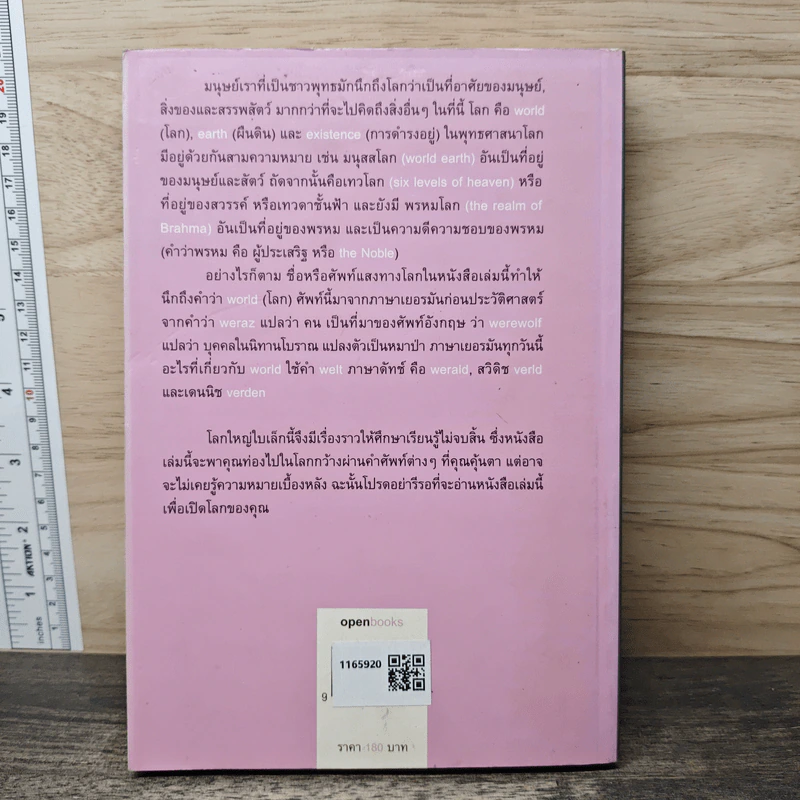 มนุษย์เราที่เป็นชาวพุทธมักนึกถึงโลกว่าเป็นที่อาศัยของมนุษย์,
สิ่งของและสรรพสัตว์ มากกว่าที่จะไปคิดถึงสิ่งอื่นๆ ในที่นี้ โลก คือ world
(โลก), earth (ผืนดิน) และ existence (การดำรงอยู่) ในพุทธศาสนาโลก
มีอยู่ด้วยกันสามความหมาย เช่น มนุสสโลก (world earth) อันเป็นที่อยู่
ของมนุษย์และสัตว์ ถัดจากนั้นคือเทวโลก (six levels of heaven) หรือ
ที่อยู่ของสวรรค์ หรือเทวดาชั้นฟ้า และยังมี พรหมโลก (the realm of
Brahma) อันเป็นที่อยู่ของพรหม และเป็นความดีความชอบของพรหม
(คำว่าพรหม คือ ผู้ประเสริฐ หรือ the Noble)
อย่างไรก็ตาม ชื่อหรือศัพท์แสงทางโลกในหนังสือเล่มนี้ทำให้
นึกถึงคำว่า world (โลก) ศัพท์นี้มาจากภาษาเยอรมันก่อนประวัติศาสตร์
จากคำว่า weraz แปลว่า คน เป็นที่มาของศัพท์อังกฤษ ว่า werewolf
แปลว่า บุคคลในนิทานโบราณ แปลงตัวเป็นหมาป่า ภาษาเยอรมันทุกวันนี้
อะไรที่เกี่ยวกับ world ใช้คำ welt ภาษาดัทช์ คือ werald, สวิดิช verld
และเดนนิช verden
โลกใหญ่ใบเล็กนี้จึงมีเรื่องราวให้ศึกษาเรียนรู้ไม่จบสิ้น ซึ่งหนังสือ
เล่มนี้จะพาคุณท่องไปในโลกกว้างผ่านคำศัพท์ต่างๆ ที่คุณคุ้นตา แต่อาจ
จะไม่เคยรู้ความหมายเบื้องหลัง ฉะนั้นโปรดอย่ารีรอที่จะอ่านหนังสือเล่มนี้
เพื่อเปิดโลกของคุณ
openbooks
1165920
9
ราคา 180 บาท
20
19
18
17
16
15
14
13
12
11
10
9
8
7
6
5
4
3
2
1
5
3
2
1
AKTION
inches